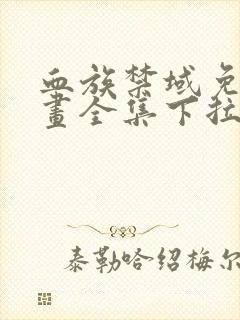 血族禁域免
畫全集下拉
泰勒哈绍梅尔